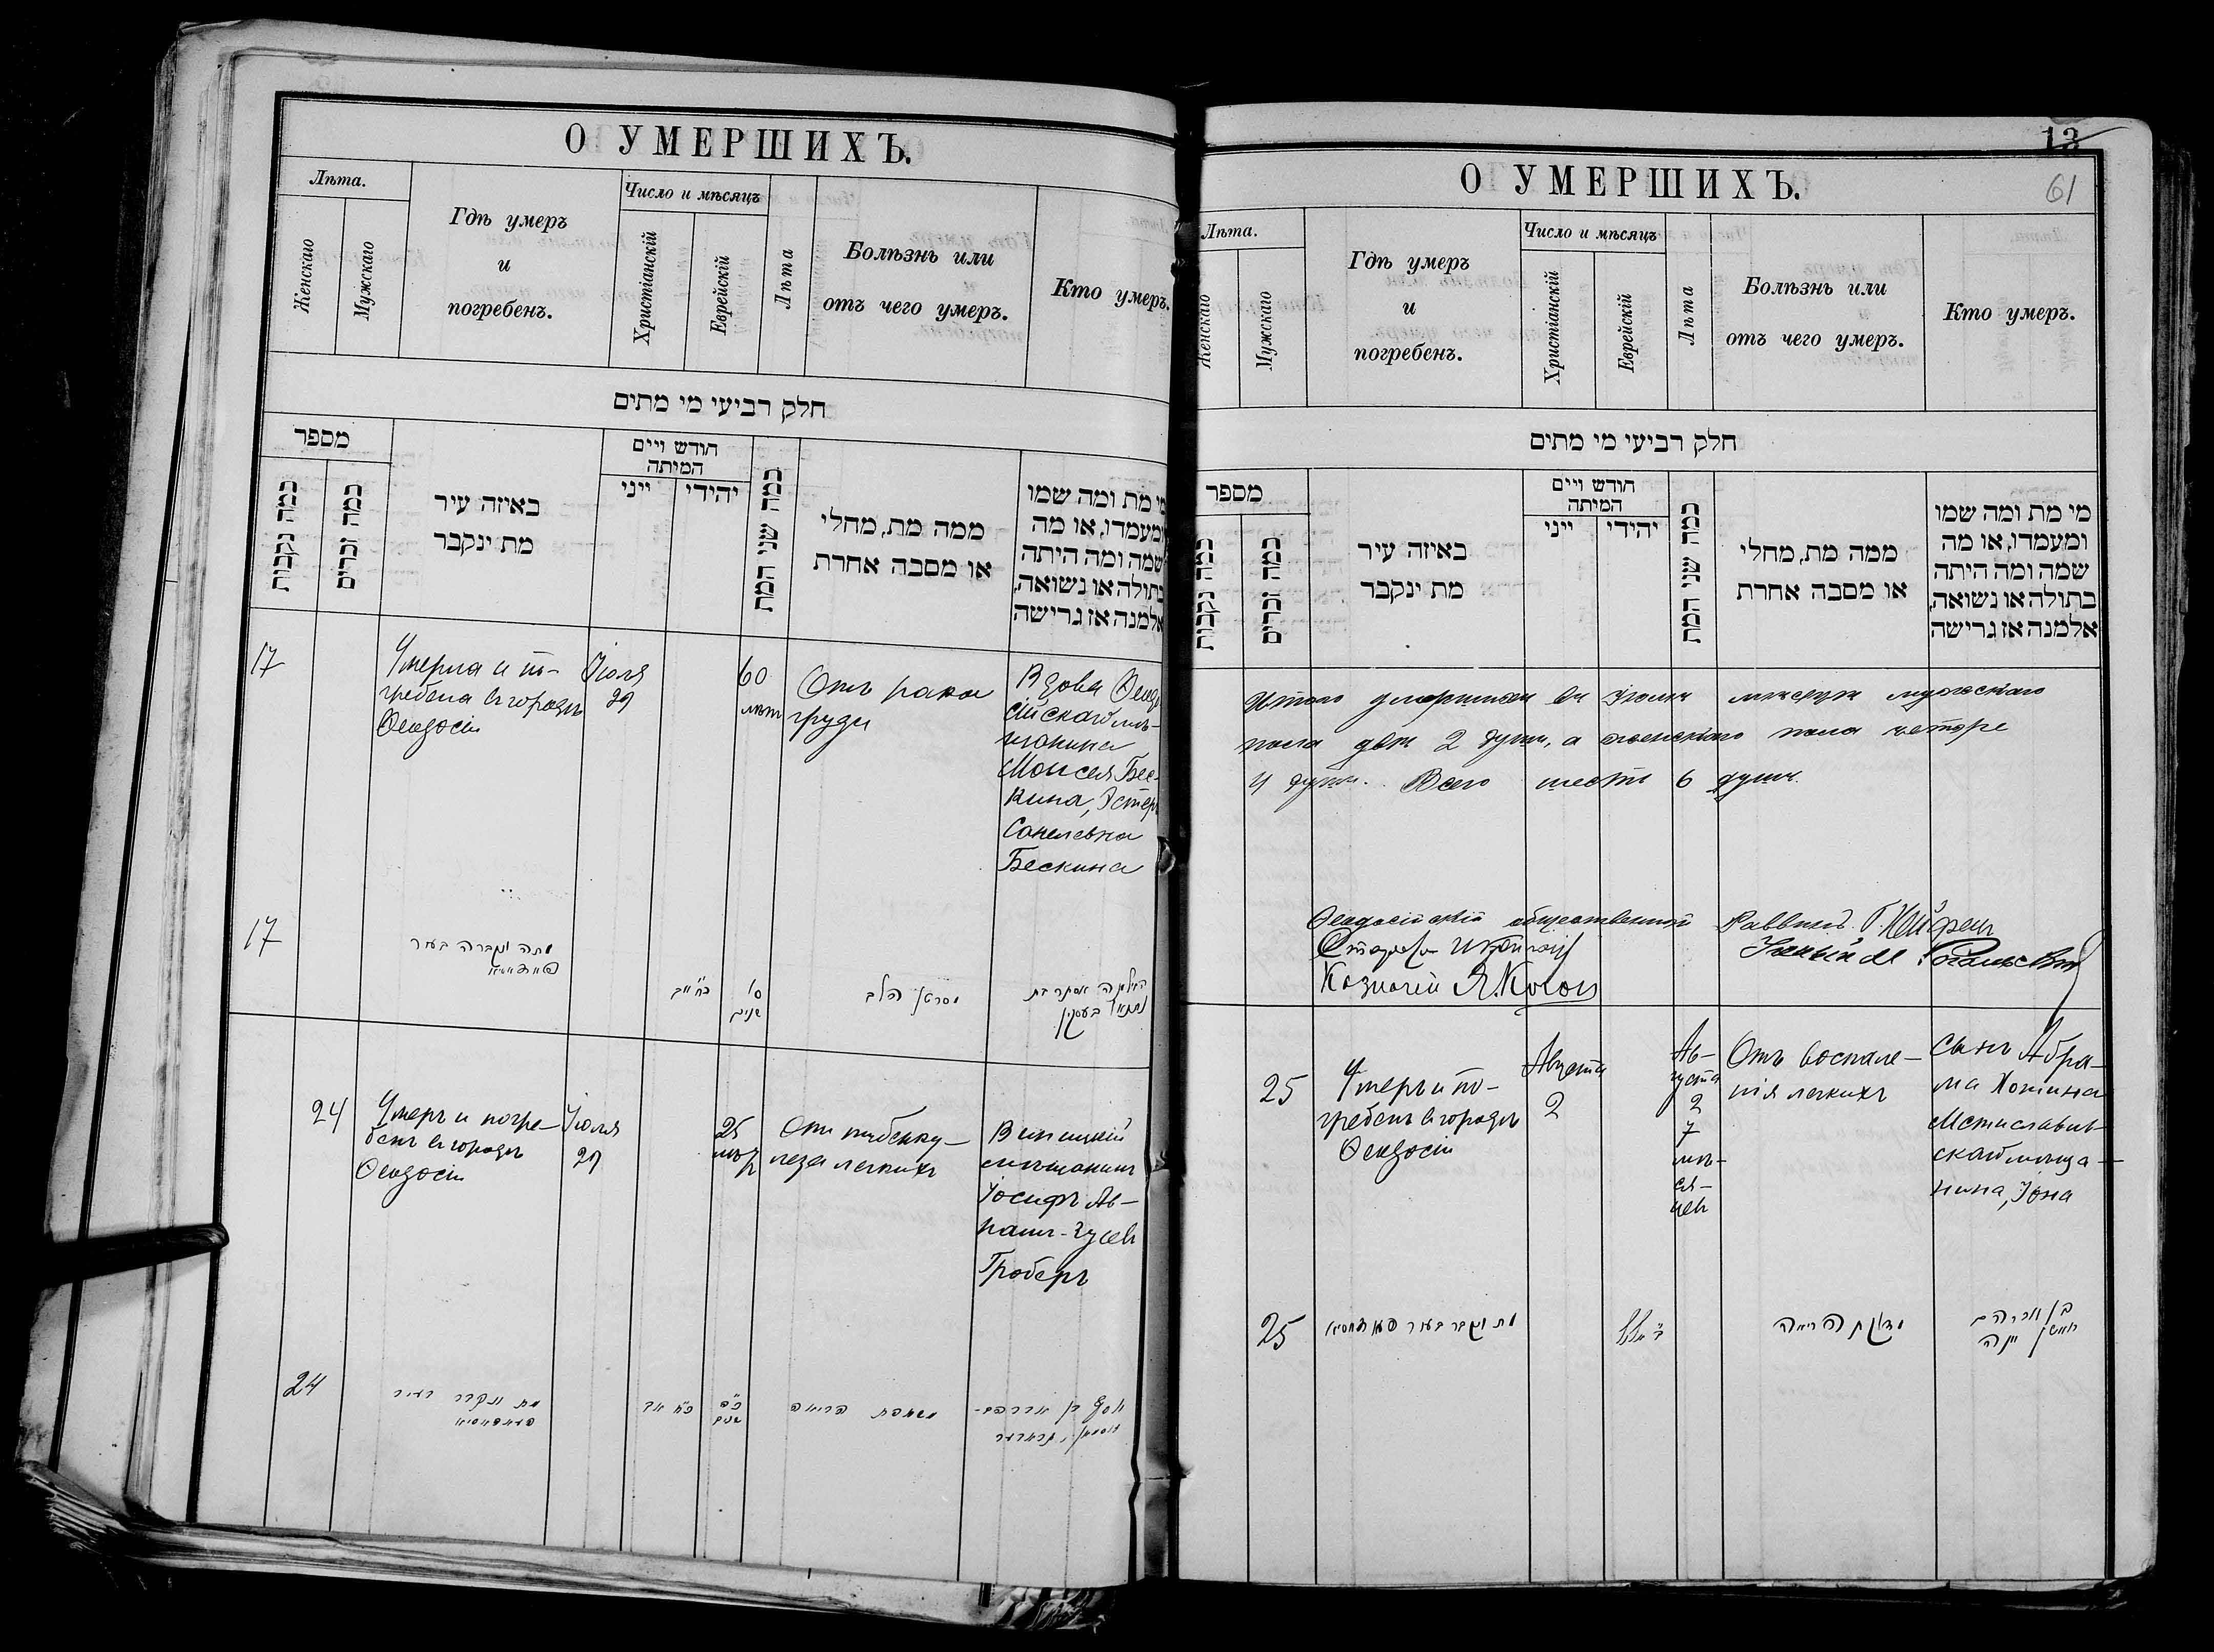 О УМЕРШИХЪ.
Лѣта.
Женскаго
Мужскаго
Гдѣ умеръ
и
погребенъ.
Число и мѣсяцъ
Христіанскій
Еврейскій
Лѣта
Болѣзнь или
отъ чего умеръ.
Кто умеръ.
חלק רביעי מי מתים
מספר
כמה נקבות
כמה זכרים
באיזה עיר
מת ינקבר
חודש ויים
המיתה
ייני
יהידי
כמה שני המת
ממה מת, מחלי
או מסבה אחרת
מי מת ומה שמו
ומעמדו, או מה
שמה ומה היתה
בתולה או נשואה,
אלמנה אז גרישה
17
Умерла и по-
гребена в городѣ
Ѳеодосіи
Іюля
29
60
лѣт
Отъ рака
груди
Вдова Ѳеодо
сійскаго мѣ-
щанина
Моисея Бес-
кина, Эстеръ
Бескина
17
מתה ונקברה בעיר
סרטן הלב
24
Умеръ и погре-
бенъ в городѣ
Ѳеодосіи
Іюля
29
25
лѣт
От туберку-
леза легкихъ
мѣщанинъ
Іосифъ Ав-
рамъ-Зусевъ
Гроберъ
24
מת ונקבר בעיר
כ״ה
שנים
יוסף בן אברהם-
13
61
О УМЕРШИХЪ.
Лѣта.
Женскаго
Мужскаго
Гдѣ умеръ
и
погребенъ.
Число и мѣсяцъ
Христіанскій
Еврейскій
Лѣта
Болѣзнь или
отъ чего умеръ.
Кто умеръ.
חלק רביעי מי מתים
מספר
כמה נקבות
כמה זכרים
באיזה עיר
מת ינקבר
חודש ויים
המיתה
ייני
יהידי
כמה שני המת
ממה מת, מחלי
או מסבה אחרת
מי מת ומה שמו
ומעמדו, או מה
שמה ומה היתה
בתולה או נשואה,
אלמנה אז גרישה
Итого умершихъ въ Іюлѣ мѣсяцѣ мужскаго
пола двѣ 2 души, а женскаго пола четыре
4 души. Всего шесть 6 душъ.
Ѳеодосійскій общественный Раввинъ
Староста
Казначей Я. Коган
25
Умеръ и по-
гребенъ в городѣ
Ѳеодосіи
Августа
2
Ав-
густа
2
7
мѣ-
ся-
цев
Отъ воспале-
нія легкихъ
Сынъ Абра-
ма Хонина
Мстиславль-
скаго мѣща-
нина, Іона
25
מת ונקבר בעיר
דלקת הריאה
בן אברהם
יונה